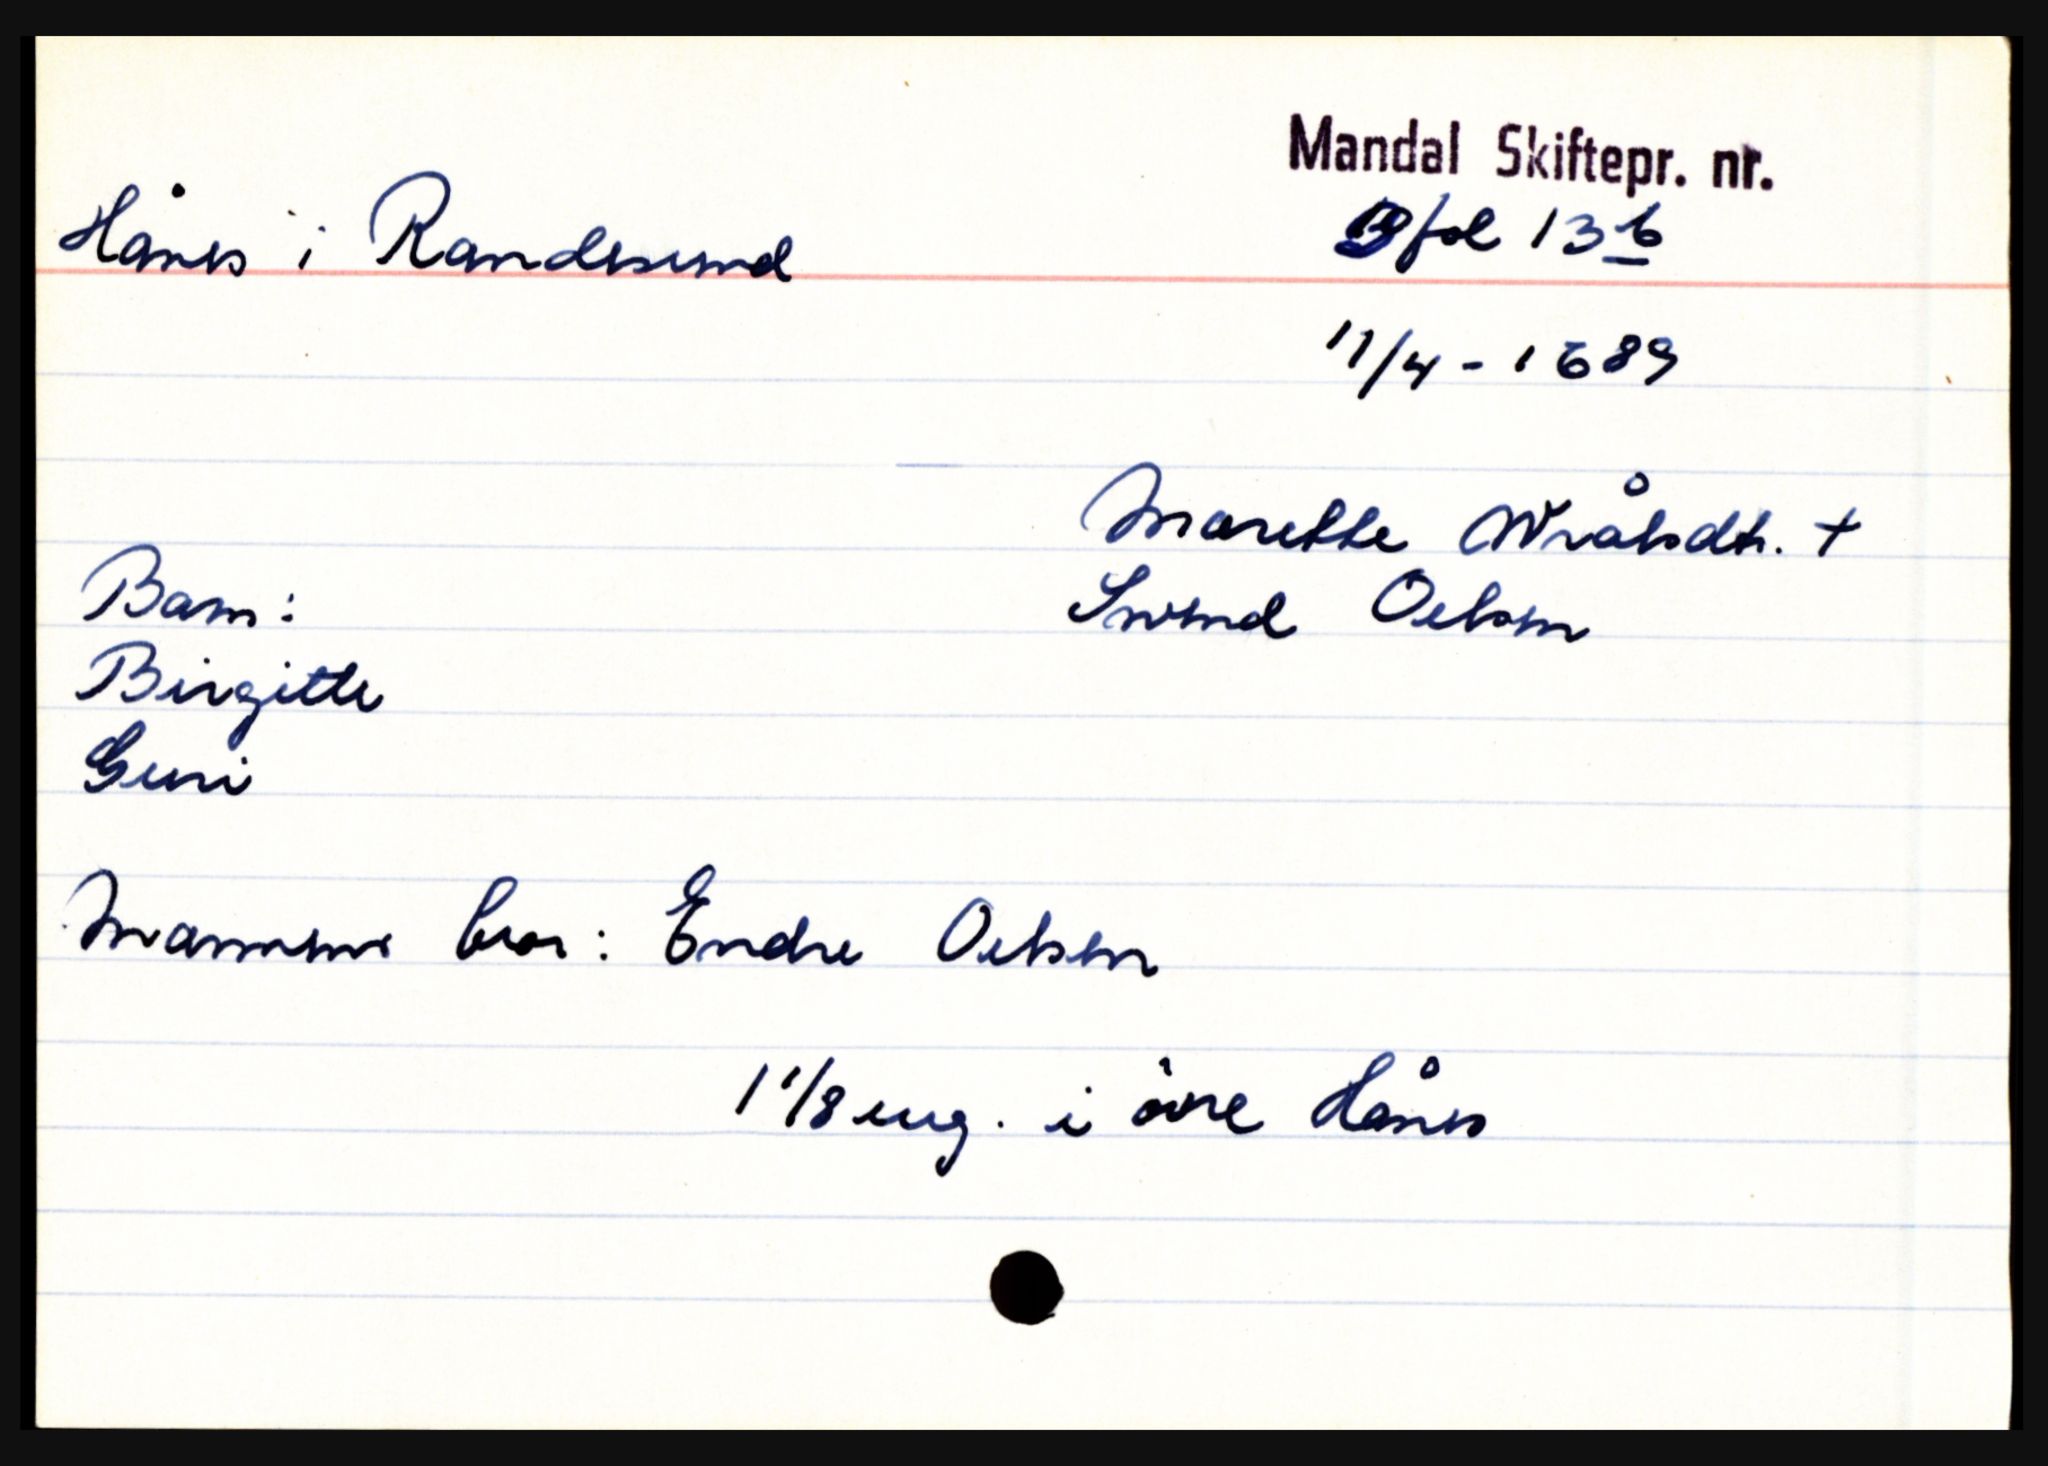 Mandal Skiftepr. nr.
Hånes i Randesund
fol 13 b
11/4 - 1689
Marette Wrålsdtr. +
Barn:
Svend Oelsen
Birgitte
Guri
Mannens bror: Endre Oelsen
1 1/8 eng. i øvre Hånes